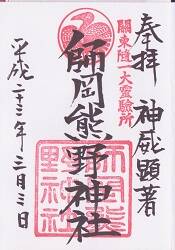 奉拝　神威顕著
關東随一大霊験所
師岡熊野神社
師岡熊
野神社
平成二十三年三月三日